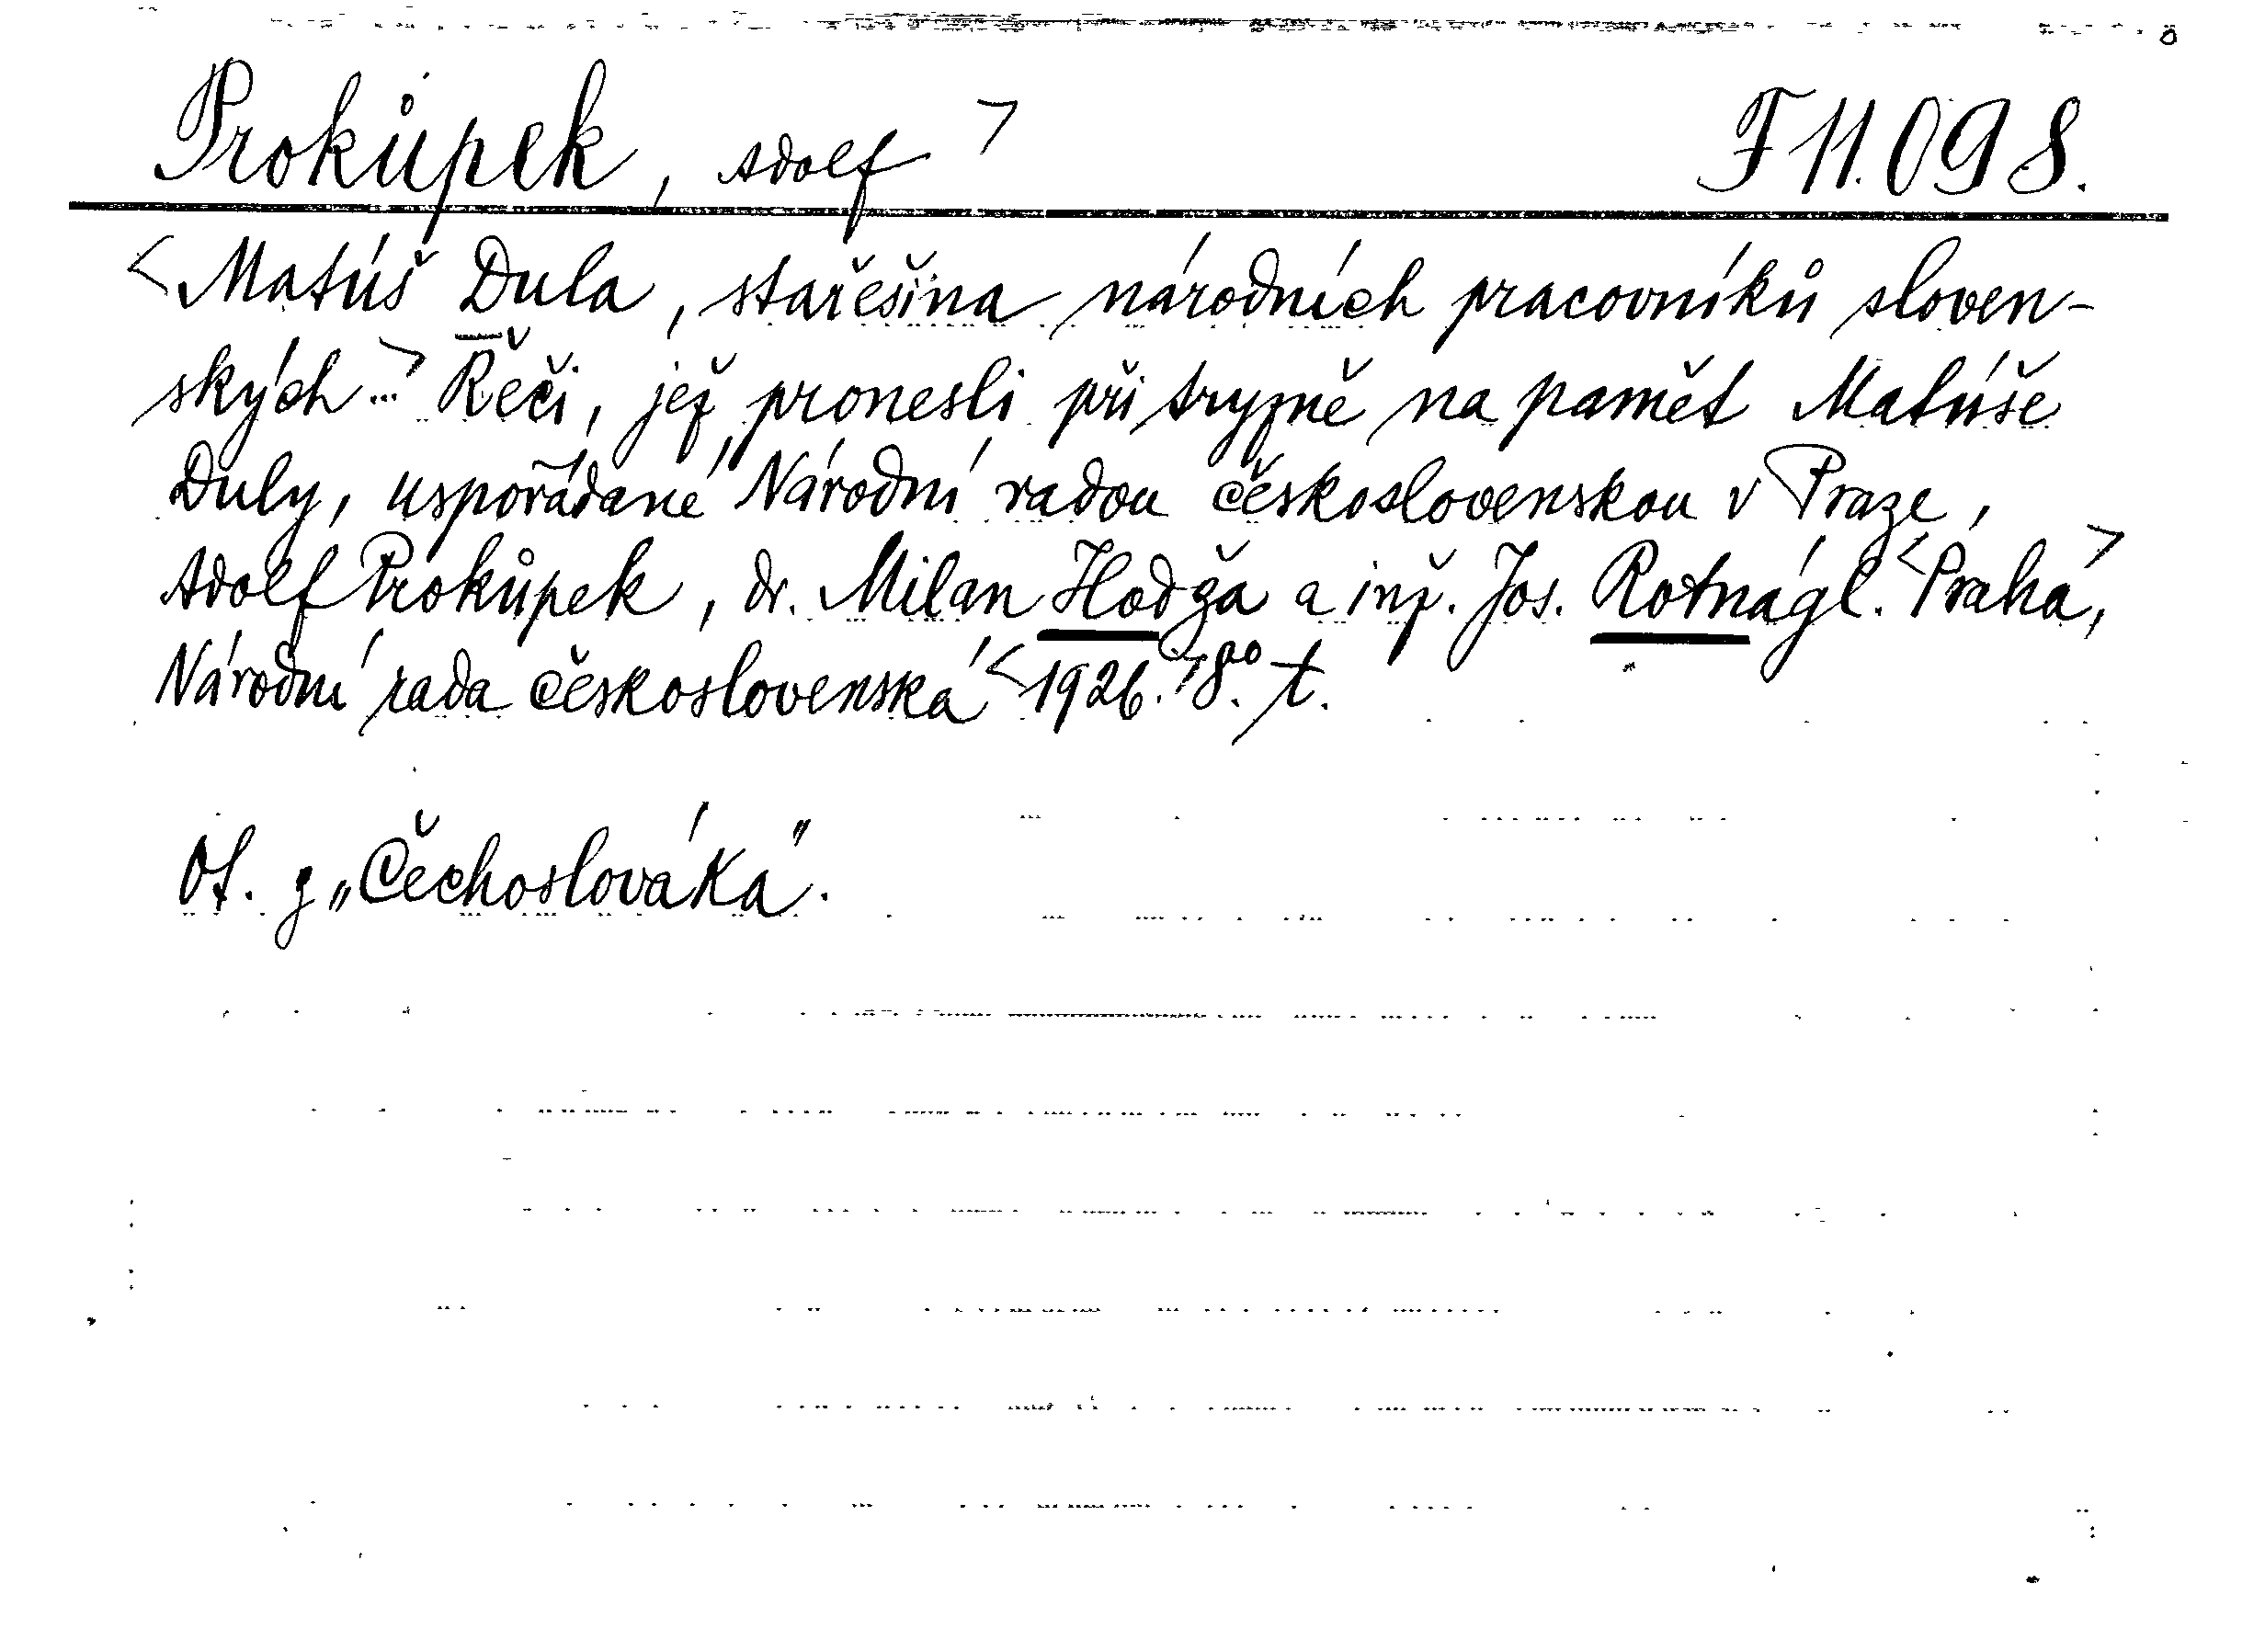 Prokůpek, Adolf > F 11.098.
<Matúš Dula, stařešina národních pracovníků sloven-
ských...> Řeči, jež pronesli při tryzně na pamět Matúše
Duly, uspořádané Národní radou československou v Praze,
Adolf Prokůpek, dr. Milan Hodža a inž. Jos. Rotnágl. <Praha,>
Národní rada československá <1926.> 8.° t.
Ot. z „Čechoslováka".